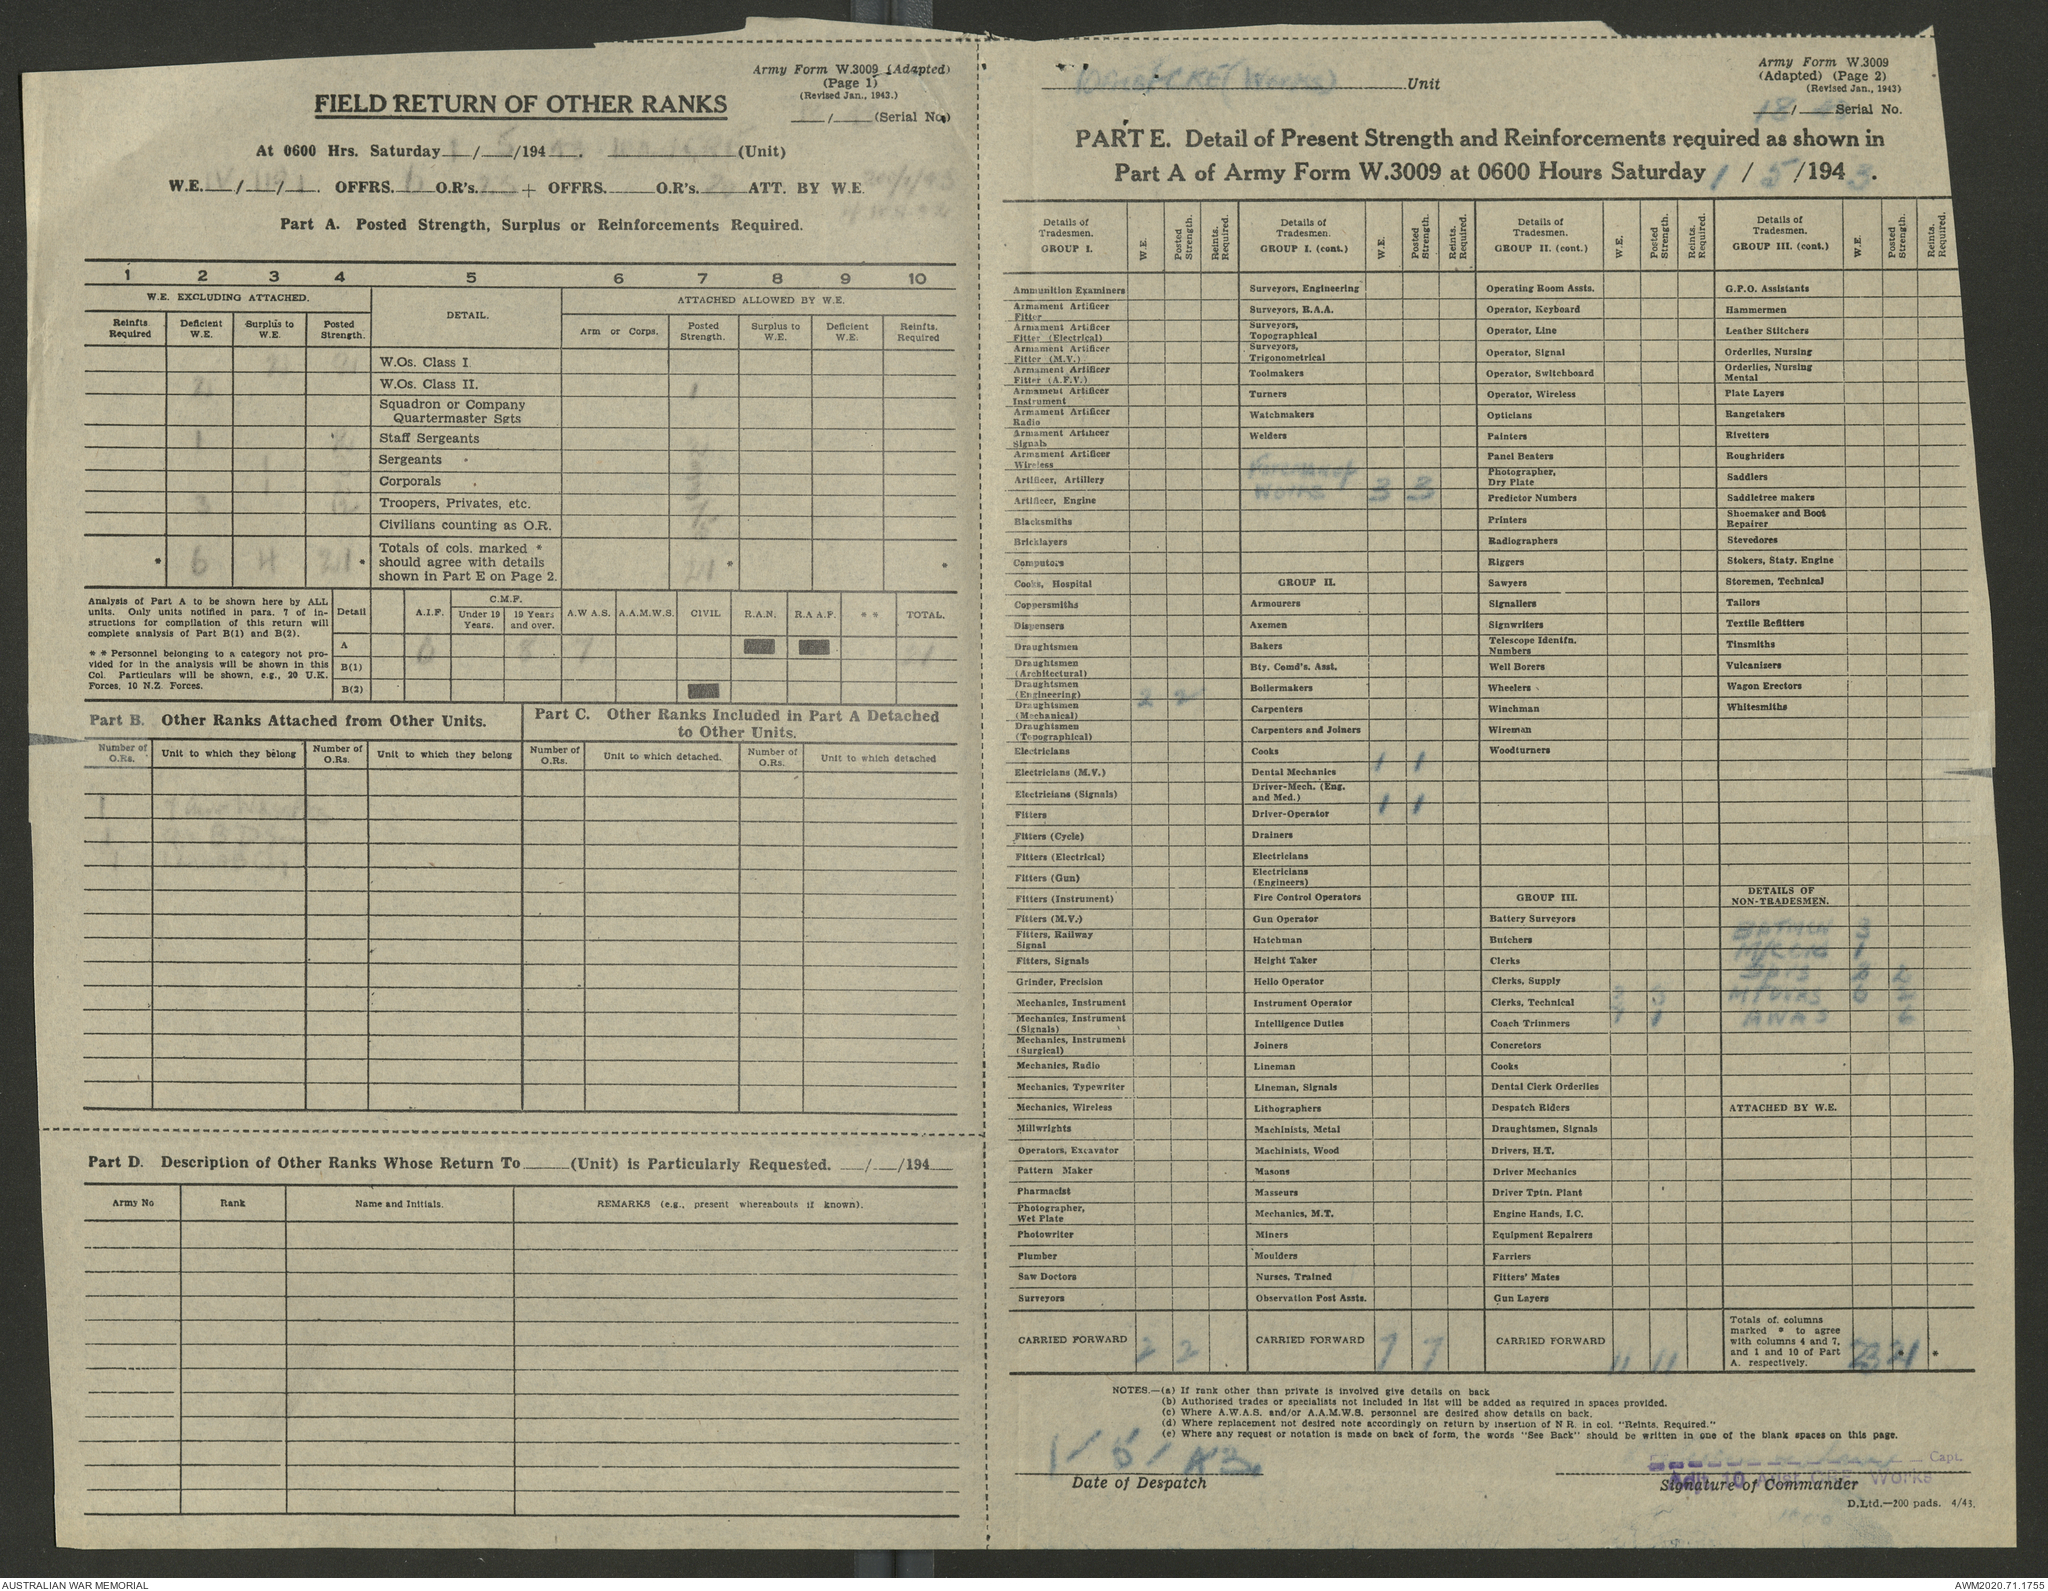 Army Form W.3009 (Adapted)
(Page 1)
(Revised Jan., 1943.)
FIELD RETURN OF OTHER RANKS
___/___(Serial No.)
At 0600 Hrs. Saturday 1/5/194 (Unit)
W.E. / / . OFFRS. O.R's. 25 + OFFRS. O.R's. ATT. BY W.E.
Part A. Posted Strength, Surplus or Reinforcements Required.
1 2 3 4 5 6 7 8 9 10
W.E. EXCLUDING ATTACHED. DETAIL. ATTACHED ALLOWED BY W.E.
Reinfts Required Deficient W.E. Surplus to W.E. Posted Strength. Arm or Corps. Posted Strength. Surplus to W.E. Deficient W.E. Reinfts. Required
W.Os. Class I.
W.Os. Class II. 1
Squadron or Company
Quartermaster Sgts
1 Staff Sergeants
1 Sergeants
1 Corporals
3 12 Troopers, Privates, etc.
Civilians counting as O.R.
* 6 4 21 * Totals of cols. marked * should agree with details shown in Part E on Page 2. 21 * *
Analysis of Part A to be shown here by ALL
units. Only units notified in para. 7 of in-
structions for compilation of this return will
complete analysis of Part B(1) and B(2).
* * Personnel belonging to a category not pro-
vided for in the analysis will be shown in this
Col. Particulars will be shown, e.g., 20 U.K.
Forces, 10 N.Z. Forces.
Detail A.I.F. C.M.F. Under 19 Years. 19 Years and over. A.W.A.S. A.A.M.W.S. CIVIL R.A.N. R.A.A.F. * * TOTAL.
A 6 8 7 21
B(1)
B(2)
Part B. Other Ranks Attached from Other Units.
Number of O.Rs. Unit to which they belong Number of O.Rs. Unit to which they belong
1
1
1
Part C. Other Ranks Included in Part A Detached
to Other Units.
Number of O.Rs. Unit to which detached. Number of O.Rs. Unit to which detached
Part D. Description of Other Ranks Whose Return To_____(Unit) is Particularly Requested. ___/___/194___
Army No Rank Name and Initials. REMARKS (e.g., present whereabouts if known).
CRE (Works) Unit
Army Form W.3009
(Adapted) (Page 2)
(Revised Jan., 1943)
18/ Serial No.
PART E. Detail of Present Strength and Reinforcements required as shown in
Part A of Army Form W.3009 at 0600 Hours Saturday 1 / 5 /194 3 .
Details of Tradesmen. GROUP I. W.E. Posted Strength. Reints. Required.
Ammunition Examiners
Armament Artificer Fitter
Armament Artificer Fitter (Electrical)
Armament Artificer Fitter (M.V.)
Armament Artificer Fitter (A.F.V.)
Armament Artificer Instrument
Armament Artificer Radio
Armament Artificer Signals
Armament Artificer Wireless
Artificer, Artillery
Artificer, Engine
Blacksmiths
Bricklayers
Computors
Cooks, Hospital
Coppersmiths
Dispensers
Draughtsmen
Draughtsmen (Architectural)
Draughtsmen (Engineering) 2 2
Draughtsmen (Mechanical)
Draughtsmen (Topographical)
Electricians
Electricians (M.V.)
Electricians (Signals)
Fitters
Fitters (Cycle)
Fitters (Electrical)
Fitters (Gun)
Fitters (Instrument)
Fitters (M.V.)
Fitters, Railway Signal
Fitters, Signals
Grinder, Precision
Mechanics, Instrument
Mechanics, Instrument (Signals)
Mechanics, Instrument (Surgical)
Mechanics, Radio
Mechanics, Typewriter
Mechanics, Wireless
Millwrights
Operators, Excavator
Pattern Maker
Pharmacist
Photographer, Wet Plate
Photowriter
Plumber
Saw Doctors
Surveyors
CARRIED FORWARD 2 2
Details of Tradesmen. GROUP I. (cont.) W.E. Posted Strength. Reints. Required.
Surveyors, Engineering
Surveyors, R.A.A.
Surveyors, Topographical
Surveyors, Trigonometrical
Toolmakers
Turners
Watchmakers
Welders
Foreman of
Works 3 3
GROUP II.
Armourers
Axemen
Bakers
Bty. Comd's. Asst.
Boilermakers
Carpenters
Carpenters and Joiners
Cooks 1 1
Dental Mechanics
Driver-Mech. (Eng. and Med.) 1 1
Driver-Operator
Drainers
Electricians
Electricians (Engineers)
Fire Control Operators
Gun Operator
Hatchman
Height Taker
Hello Operator
Instrument Operator
Intelligence Duties
Joiners
Lineman
Lineman, Signals
Lithographers
Machinists, Metal
Machinists, Wood
Masons
Masseurs
Mechanics, M.T.
Miners
Moulders
Nurses, Trained
Observation Post Assts.
CARRIED FORWARD 7 7
Details of Tradesmen. GROUP II. (cont.) W.E. Posted Strength. Reints. Required.
Operating Room Assts.
Operator, Keyboard
Operator, Line
Operator, Signal
Operator, Switchboard
Operator, Wireless
Opticians
Painters
Panel Beaters
Photographer, Dry Plate
Predictor Numbers
Printers
Radiographers
Riggers
Sawyers
Signallers
Signwriters
Telescope Identfn. Numbers
Well Borers
Wheelers
Winchman
Wireman
Woodturners
GROUP III.
Battery Surveyors
Butchers
Clerks
Clerks, Supply
Clerks, Technical 3 3
Coach Trimmers 1 1
Concretors
Cooks
Dental Clerk Orderlies
Despatch Riders
Draughtsmen, Signals
Drivers, H.T.
Driver Mechanics
Driver Tptn. Plant
Engine Hands, I.C.
Equipment Repairers
Farriers
Fitters' Mates
Gun Layers
CARRIED FORWARD 11 11
Details of Tradesmen. GROUP III. (cont.) W.E. Posted Strength. Reints. Required.
G.P.O. Assistants
Hammermen
Leather Stitchers
Orderlies, Nursing
Orderlies, Nursing Mental
Plate Layers
Rangetakers
Rivetters
Roughriders
Saddlers
Saddletree makers
Shoemaker and Boot Repairer
Stevedores
Stokers, Staty. Engine
Storemen, Technical
Tailors
Textile Refitters
Tinsmiths
Vulcanizers
Wagon Erectors
Whitesmiths
DETAILS OF NON-TRADESMEN.
BATMEN 3
1
Sprs 2 2
6 2
AWAS 6
ATTACHED BY W.E.
Totals of columns marked * to agree with columns 4 and 7, and 1 and 10 of Part A. respectively. 23 21 *
NOTES.—(a) If rank other than private is involved give details on back
(b) Authorised trades or specialists not included in list will be added as required in spaces provided.
(c) Where A.W.A.S. and/or A.A.M.W.S. personnel are desired show details on back.
(d) Where replacement not desired note accordingly on return by insertion of N R. in col. "Reints. Required."
(e) Where any request or notation is made on back of form, the words "See Back" should be written in one of the blank spaces on this page.
1/5/43.
Date of Despatch
Capt.
Adjt 10 Aust CRE Works
Signature of Commander
D.Ltd.—200 pads. 4/43.
AUSTRALIAN WAR MEMORIAL
AWM2020.71.1755